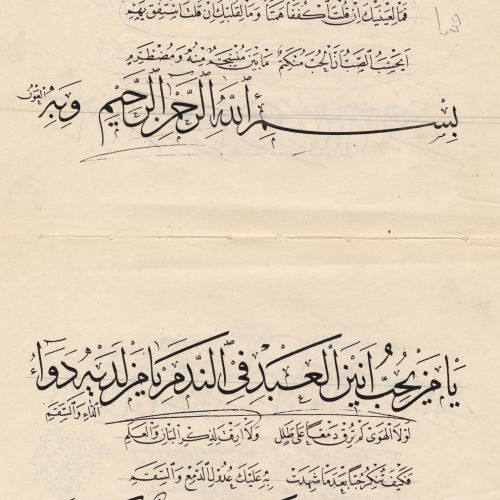 فَمَا لِعَيْنَيْكَ اِنْ قُلْتَ اكْفُفَا هَمَتَا وَمَا لِقَلْبِكَ اِنْ قُلْتَ اسْتَفِقْ يَهِمِ
اَيَحْسَبُ الصَّبُّ اَنَّ الْحُبَّ مُنْكَتِمٌ مَا بَيْنَ مُنْسَجِمٍ مِنْهُ وَمُضْطَرِمِ
بِسْمِ اللهِ الرَّحْمٰنِ الرَّحِيمِ وَبِهِ العَوْنُ
يَا مَنْ يُحِبُّ اَنِينَ الْعَبْدِ فِي النَّدَمِ يَا مَنْ لَدَيْهِ دَوَاءُ
الدَّاءِ وَالسَّقَمِ
لَوْلَا الْهَوٰى لَمْ تُرِقْ دَمْعًا عَلٰى طَلَلٍ وَلَا اَرِقْتَ لِذِكْرِ الْبَانِ وَالْعَلَمِ
فَكَيْفَ تُنْكِرُ حُبًّا بَعْدَ مَا شَهِدَتْ بِهِ عَلَيْكَ عُدُولُ الدَّمْعِ وَالسَّقَمِ